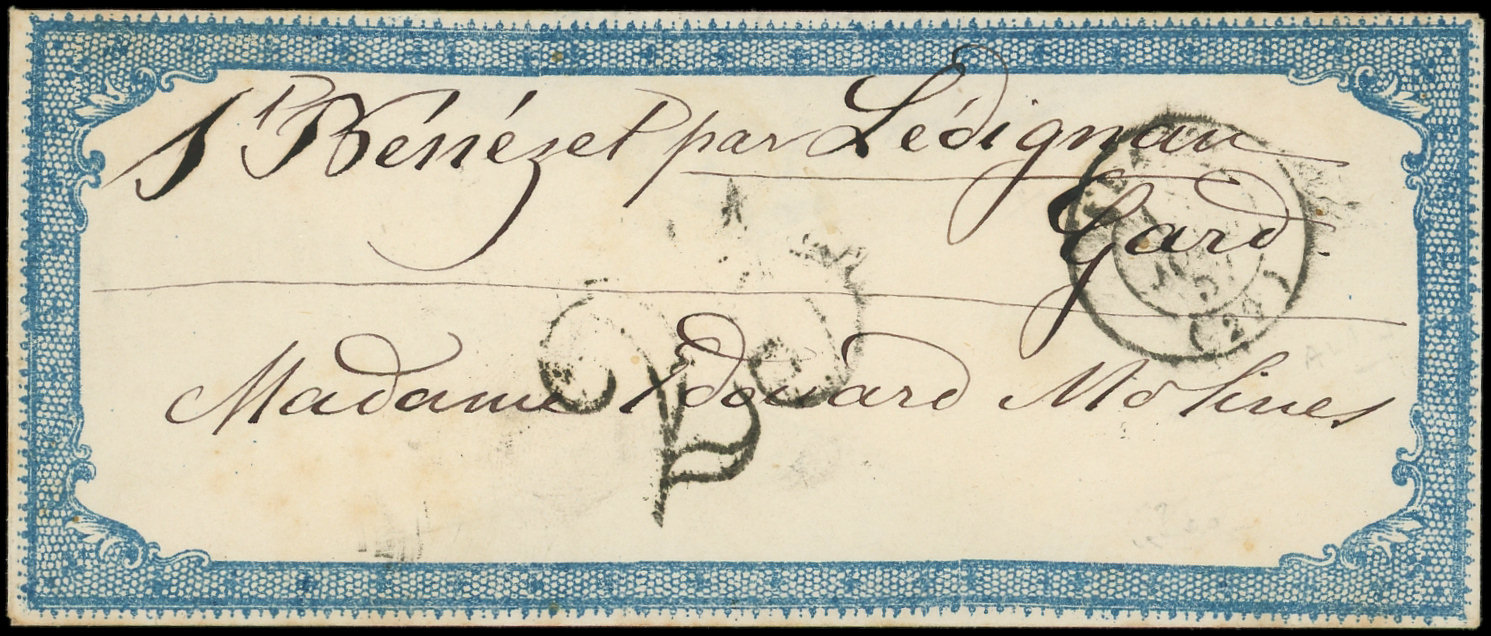 St Bénézet par Lédignan
Gard
Madame Edouard Molines
(29)